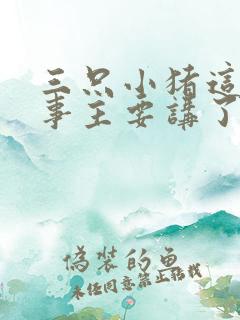 三只小猪這
事主要講了
偽裝的魚
未任同意禁止轉載